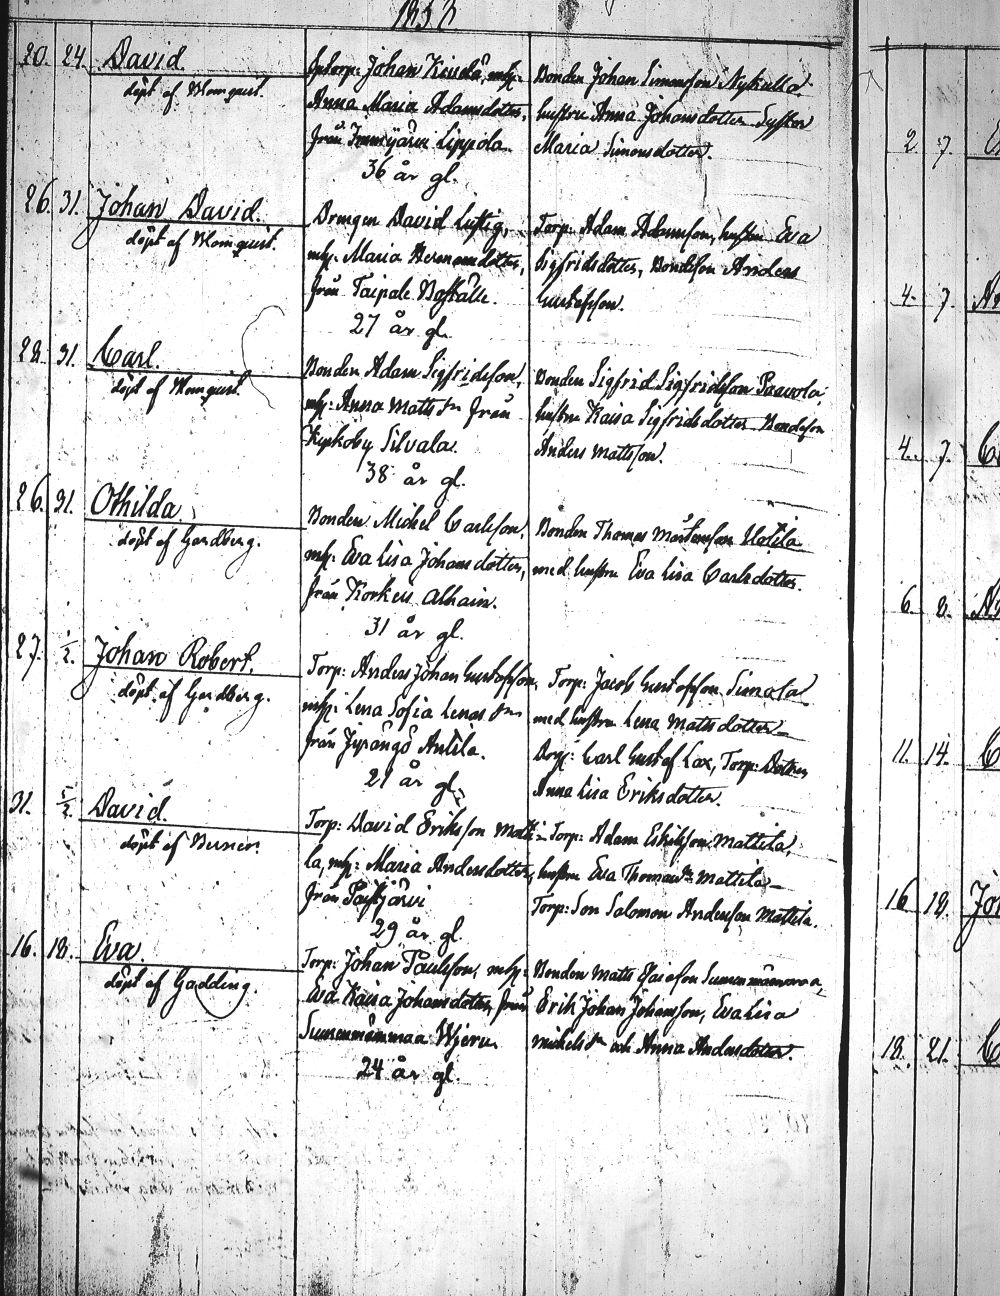 20. 24. David.
döpt af Blomquist.
Johan
Anna Maria Adamsdotter,
från Lippola
36 år gl.
Bonden Johan Simonsson Nykulla
hustru Anna Johansdotter Syster
Maria Simonsdotter.
26. 31. Johan David.
döpt af Blomquist.
Drengen David Luftig,
mhp: Maria Hermansdotter,
från Taipale Boställe.
27 år gl.
Torp: Adam Adamsson, hustru Eva
Sigfridsdotter, Bondeson Anders
Gustafsson.
28. 31. Carl.
döpt af Blomquist.
Bonden Adam Sigfridsson,
mhp: Anna Matts dr från
Kyrkoby Silvala.
38 år gl.
Bonden Sigfrid Sigfridsson Paavola,
hustru Kaisa Sigfridsdotter Bondeson
Anders Mattsson.
26. 31. Othilda
döpt af Gardberg.
Bonden Michel Carlsson,
mhp: Eva Lisa Johansdotter,
från Korkeis Alhain.
31 år gl.
Bonden Thomas Mårtensson Uotila
med hustru Eva Lisa Carlsdotter.
27. 1/2. Johan Robert.
döpt af Gardberg.
Torp: Anders Johan Gustafsson,
mhp: Lena Sofia Lenas dr
från Jyrängö Antila.
21 år gl.
Torp: Jacob Gustafsson Simola
med hustru Lena Matts dotter
Carl Gustaf Lax, Torp: Dottren
Anna Lisa Eriksdotter.
31. 5/2. David.
döpt af
Torp: David Eriksson Matti-
la, mhp: Maria Andersdotter,
från Paistjärvi
29 år gl.
Torp: Adam Eskilsson Mattila,
hustru Eva Thomas dr Mattila
Torp: Son Salomon Andersson Mattila.
16. 18. Eva.
döpt af Gadding.
Torp: Johan Paulsson, mhp:
Eva Kaisa Johansdotter, från
Sunenmäenmaa
24 år gl.
Bonden Matts Esaiasson
Erik Johan Johansson, Eva Lisa
Michels dr och Anna Andersdotter.
2. 7.
4. 7.
4. 7.
6. 8.
11. 14.
16 18.
18. 21.